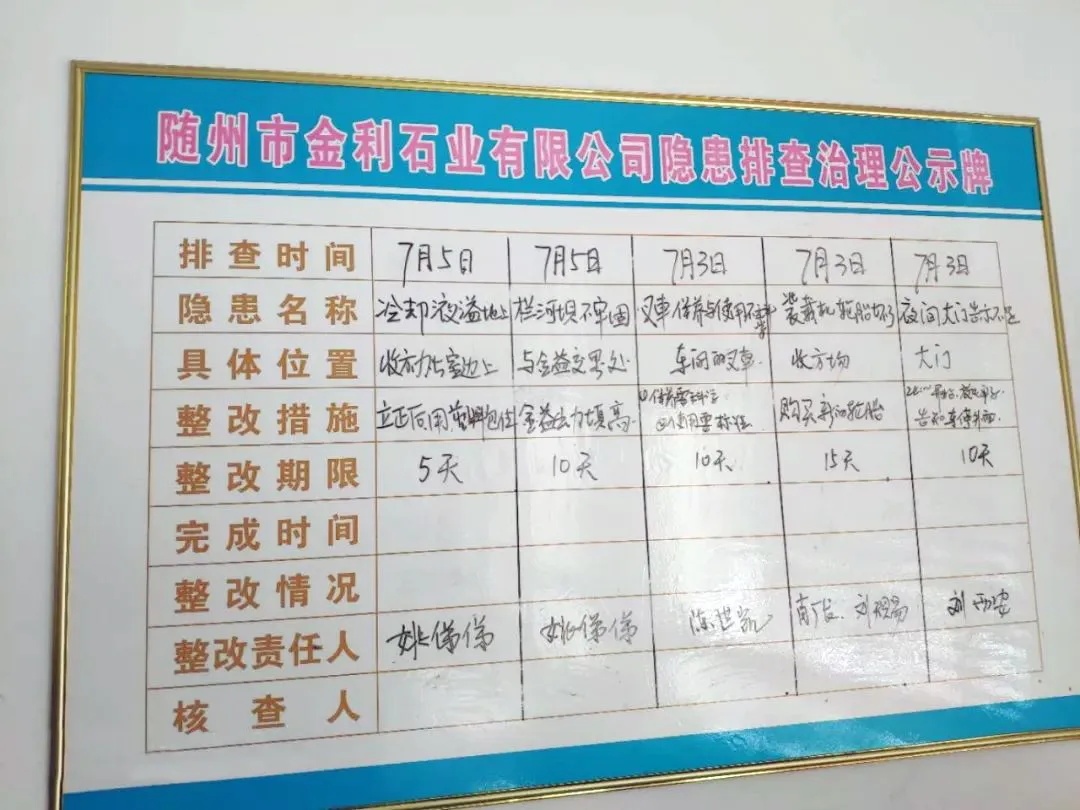 随州市金利石业有限公司隐患排查治理公示牌
排查时间 7月5日 7月5日 7月3日 7月3日 7月3日
隐患名称 冷却液溢地上 栏河坝不牢固 叉车保养与使用不 装载机轮胎 夜间大门告示不
具体位置 收方办公室边上 与金益交界处 车间的叉车 收方场 大门
整改措施 立正后用塑料包住 金益出力填高 使用要标准 购买新的轮胎 告知
整改期限 5天 10天 10天 15天 10天
完成时间
整改情况
整改责任人 姚俤俤 姚俤俤 刘
核查人